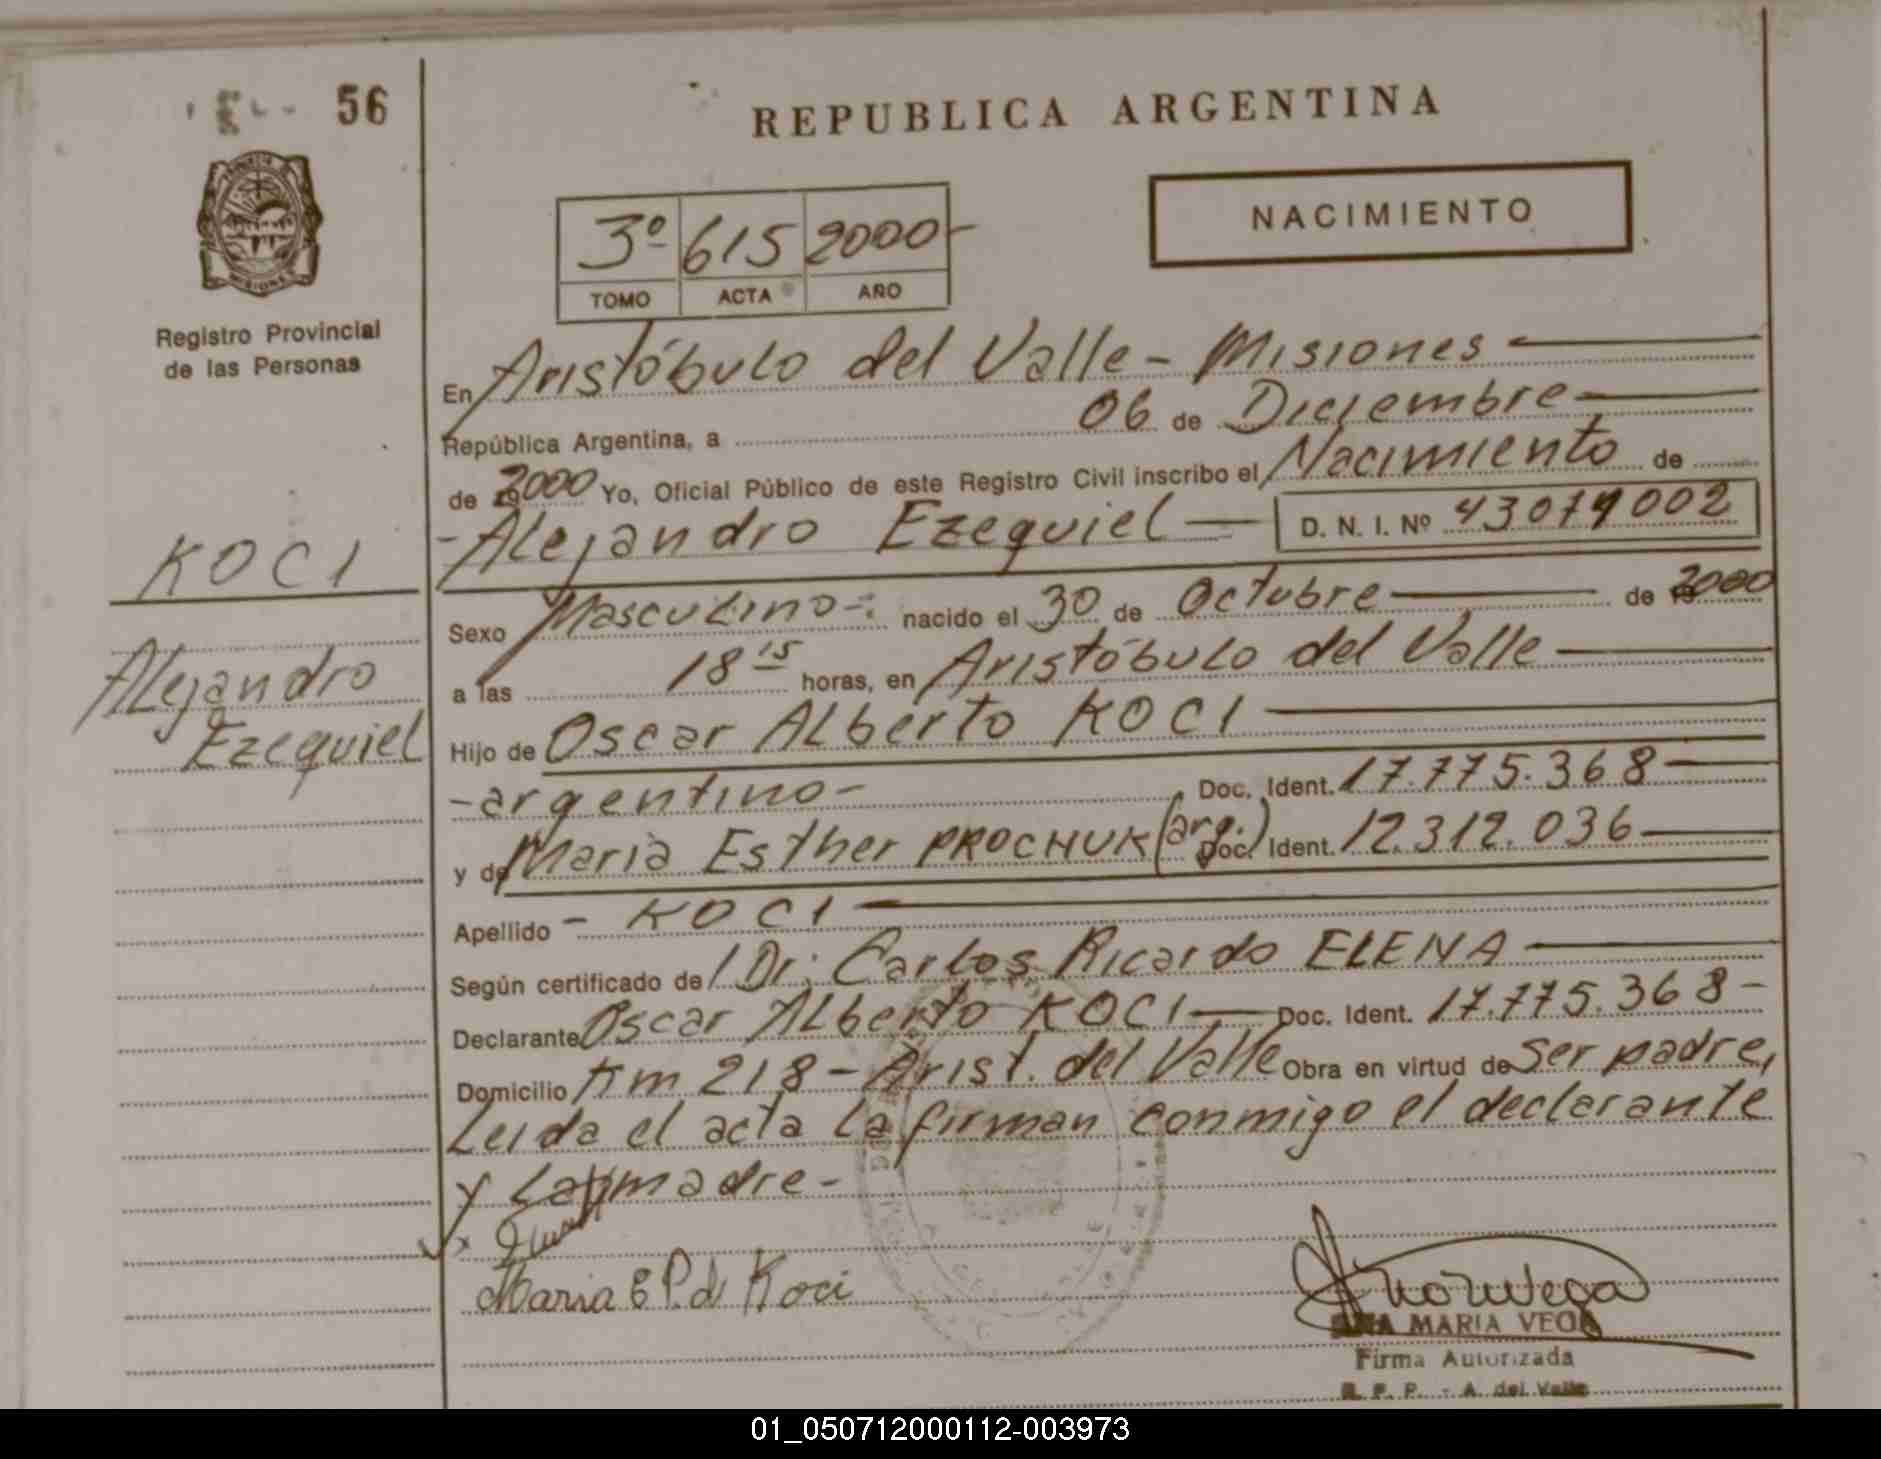 56
REPUBLICA ARGENTINA
NACIMIENTO
3º 615 2000-
TOMO ACTA AÑO
MISIONES
Registro Provincial
de las Personas
KOCI
Alejandro
Ezequiel
En Aristóbulo del Valle - Misiones
República Argentina, a 06 de Diciembre
de 2000 Yo, Oficial Público de este Registro Civil inscribo el Nacimiento de
-Alejandro Ezequiel- D. N. I. Nº
Sexo Masculino-: nacido el 30 de Octubre de 2000
a las 18 15 horas, en Aristóbulo del Valle
Hijo de Oscar Alberto KOCI
-argentino- Doc. Ident. 17.775.368-
y de Maria Esther PROCHUK (arg.) Doc. Ident. 12.312.036
Apellido - KOCI
Según certificado de Dr. Carlos Ricardo ELENA
Declarante Oscar Alberto KOCI Doc. Ident. 17.775.368-
Domicilio Km 218 - Arist. del Valle Obra en virtud de ser padre,
Leida el acta la firman conmigo el declarante
y la madre-
Maria E P. d Koci
MARIA
Firma Autorizada
A. del Valle
01_050712000112-003973